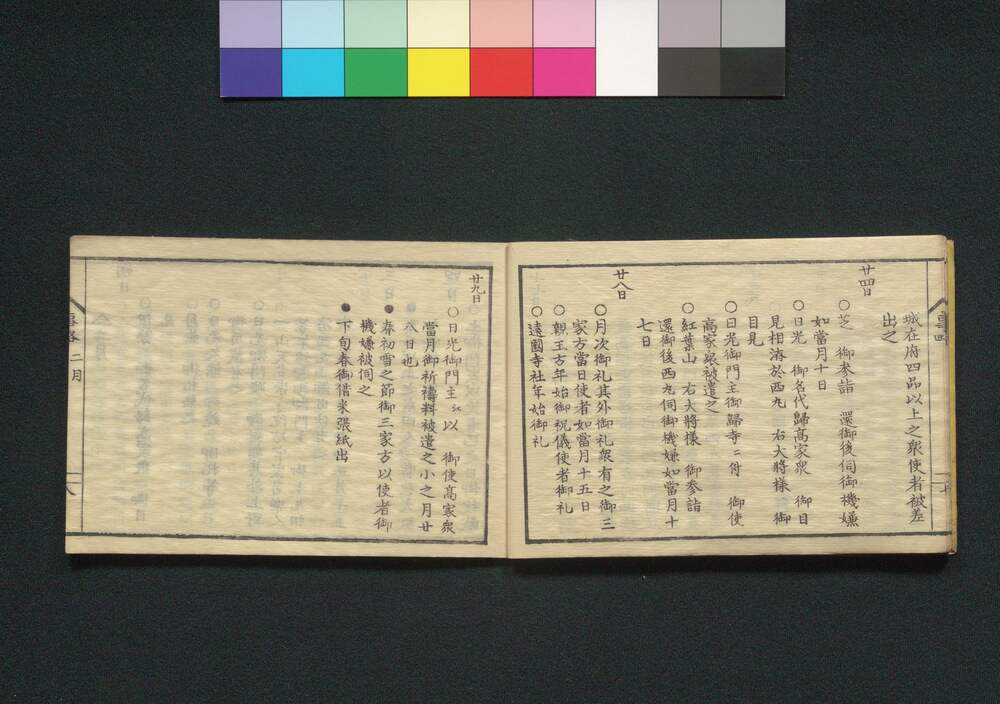 城在府四品以上之衆使者被差
出之
廿四日
○芝　御参詣　還御後伺御機嫌
如當月十日
○日光　御名代歸高家衆　御目
見相濟於西丸　右大將様　御
目見
○日光御門主御歸寺ニ付　御使
高家衆被遣之
○紅葉山　右大將様　御参詣
還御後西丸伺御機嫌如當月十
七日
廿八日
○月次御礼其外御礼衆有之御三
家方當日使者如當月十五日
○親王方年始御祝儀使者御礼
○遠國寺社年始御礼
廿九日
○日光御門主江以　御使高家衆
當月御祈禱料被遣之小之月廿
八日也
●春初雪之節御三家方以使者御
機嫌被伺之
●下旬春御借米張紙出
二月